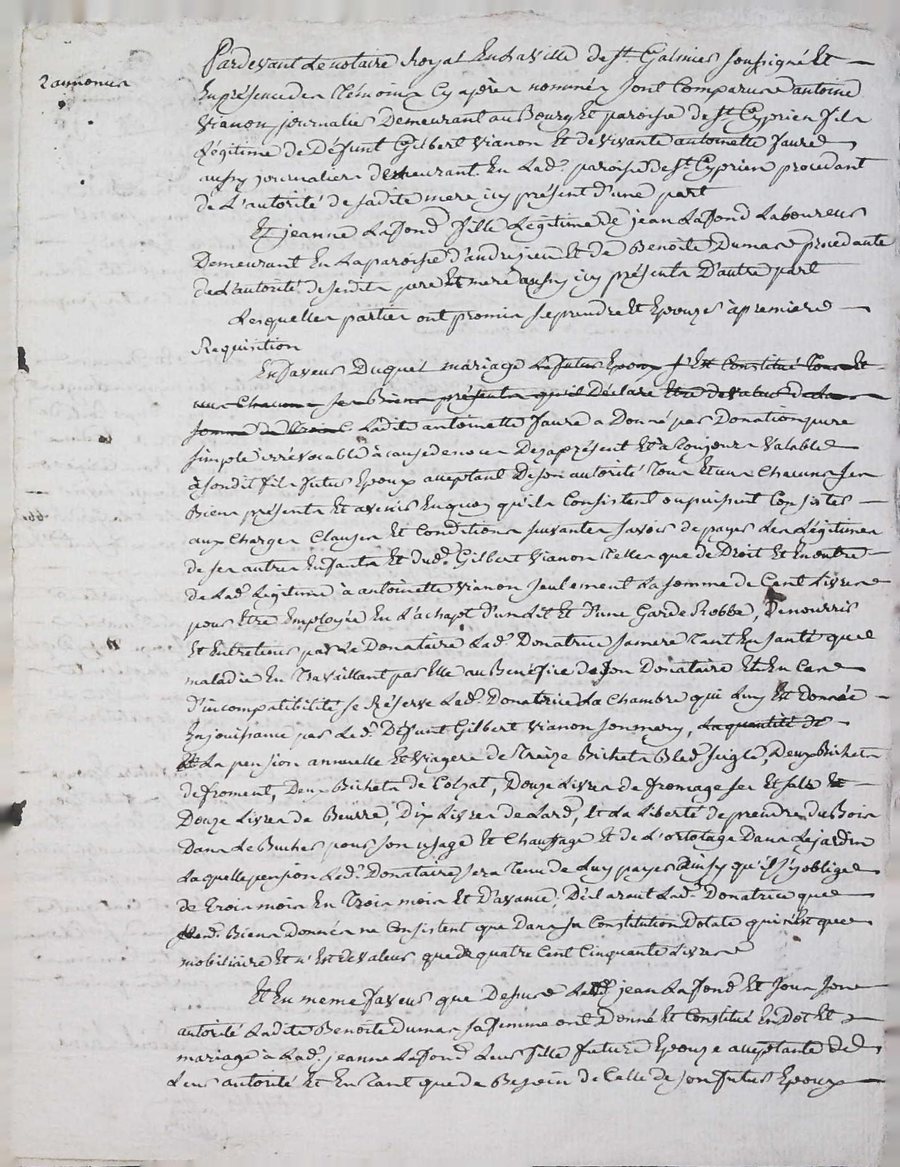 2 annonces
Pardevant Le notaire Royal En La ville de st. Galmier soussigné Et
En présence des Témoins Cy après nommés sont Comparus antoine
Vianon journalier Demeurant au Bourg Et paroisse de st. Cyprien fils
Légitime de Défunt Gilbert Vianon Et de vivante antoinette faure
aussy journaliere demeurant En Lad. paroisse de st. Cyprien procedant
de L'autorité de sadite mere icy présent d'une part
Et jeanne Laffond fille Légitime de jean Laffond Laboureur
Demeurant En La paroisse d'andrejeu Et de Benoite Dumas procedante
de L'autorité desdits pere Et mere aussy icy présents D'autre part
Lesquelles parties ont promis se prendre Et Epouze à premiere
Requisition
En faveur Duquel mariage Le futur Epoux s'Est Constitué Tous Et
uns Chacuns ses Biens présents qu'il Déclare Etre de valeur de la
somme de Trois Ladite antoinette faure a Donné par Donation pure
simple irrévocable à cause de noces Desapresent Et à Toujours valable
à sondit fils futur Epoux acceptant De son autorité Tous Et uns Chacuns ses
Biens présents Et avenir En quoy qu'ils Consistent ou puissent Consister
aux Charges Clauses Et Conditions suivantes savoir de payer Les Légitimes
de ses autres Enfants Et dud. Gilbert Vianon Telles que de Droit Et En outre
de Lad. Légitime à antoinette Vianon seulement La somme de Cent Livres
pour Etre Employée En L'achapt d'un Lit Et d'une Garde Robbe, De nourrir
Et Entretenir par Le Donataire Lad. Donatrice sa mere Tant En santé que
maladie En Travaillant par Elle au Bénéfice de son Donataire Et En Cas
d'incompatibilité se Réserve Lad. Donatrice La Chambre qui Luy Est donnée
En jouissance par Led. Défunt Gilbert Vianon son mary, La quantité de
Et La pension annuelle Et viagere de Treize Bichets Bled seigle, Deux Bichets
de froment, Deux Bichets de Colzat, Douze Livres de fromage sec Et salé Et
Douze Livres de Beurre, Dix Livres de Lard, Et La Liberté de prendre du Bois
Dans Le Bucher pour son usage Et Chauffage Et de L'ortolage Dans Le jardin
Laquelle pension Led. Donataire sera Tenu de Luy payer Ainsy qu'il s'y oblige
de Trois mois En Trois mois Et D'avance, Déclarant Lad. Donatrice que
Lesd. Biens donnés ne Consistent que Dans sa Constitution Dotale qui n'est que
mobiliaire Et n'Est De valeur que De quatre Cent Cinquante Livres
Et En meme faveur que Dessus Led. jean Laffond Et sous son
autorité Ladite Benoite Dumas sa femme ont Donné Et Constitué En Dot Et
mariage à Lad. jeanne Laffond Leur fille future Epouze acceptante de
Leur autorité Et En Tant que de Besoin de Celle de son futur Epoux